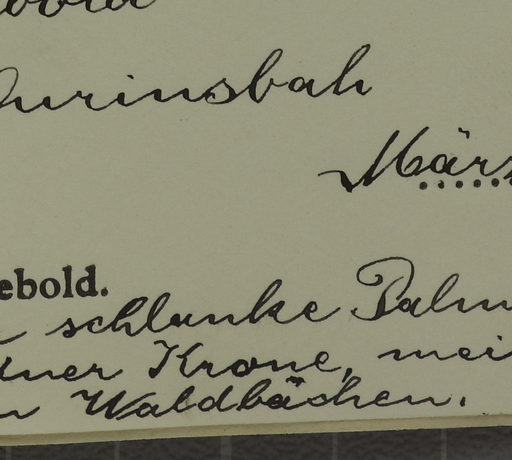 Durinsbah
März
ebold.
schlanke Palm
ner Krone, mei
Waldbächen.